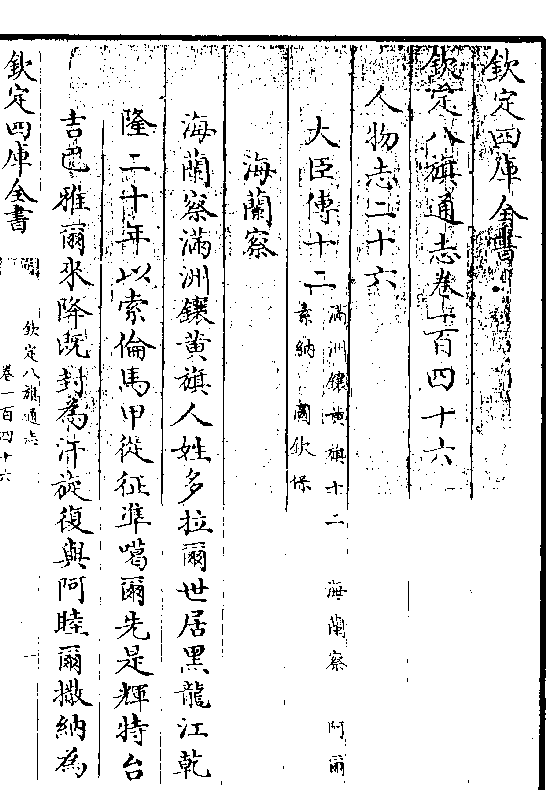 欽定四庫全書
欽定八旗通志卷一百四十六
人物志二十六
大臣傳十二
滿洲鑲黃旗十二 海蘭察 阿爾
素納 國欽保
海蘭察
海蘭察滿洲鑲黃旗人姓多拉爾世居黑龍江乾
隆二十年以索倫馬甲從征準噶爾先是輝特台
吉巴雅爾來降既封為汗旋復與阿睦爾撒納為
欽定四庫全書
欽定八旗通志
卷一百四十六
一